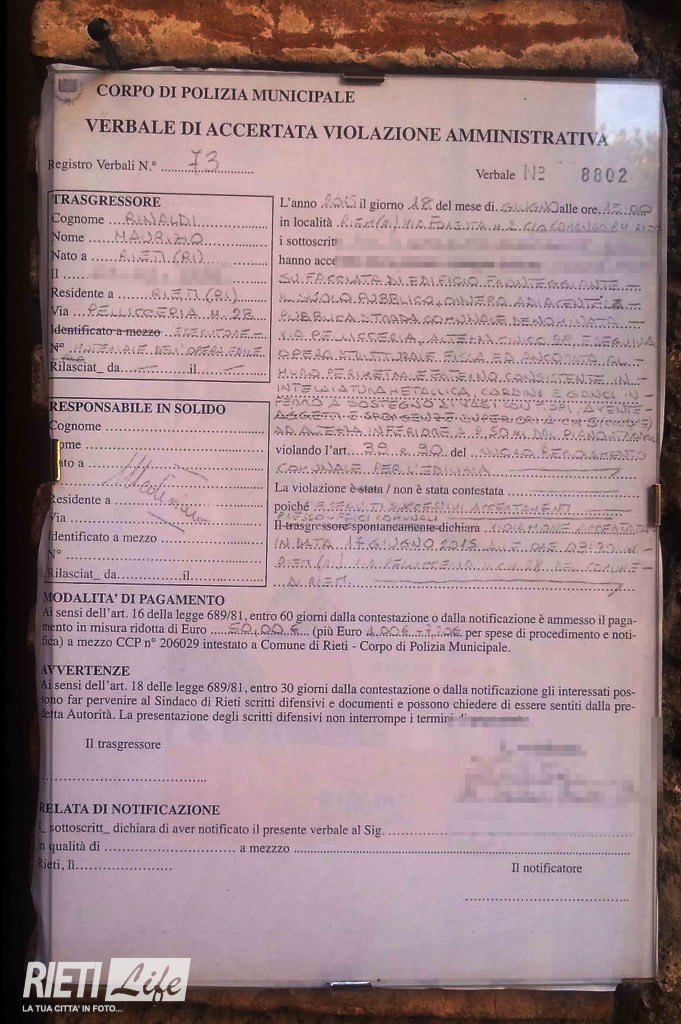 CORPO DI POLIZIA MUNICIPALE
VERBALE DI ACCERTATA VIOLAZIONE AMMINISTRATIVA
Registro Verbali N.° 73
Verbale Nº 8802
TRASGRESSORE
Cognome RINALDI
Nome MAURIZIO
Nato a RIETI (RI)
Il
Residente a RIETI (RI)
Via PELLICCERIA N. 28
Identificato a mezzo ESECUTORE
N° MATERIALE DELL'OPERAZIONE
Rilasciat_ da il
RESPONSABILE IN SOLIDO
Cognome
Nome
Nato a
Il
Residente a
Via
Identificato a mezzo
N°
Rilasciat_ da il
L'anno 2015 il giorno 18 del mese di GIUGNO alle ore 13:00
in località RIETI (RI) VIA FORESTA N. 2 C/O COMANDO P.M. RIETI
i sottoscritt
hanno acce
SU FACCIATA DI EDIFICIO FRONTEGGIANTE
IL SUOLO PUBBLICO, OVVERO ADIACENTE LA
PUBBLICA STRADA COMUNALE DENOMINATA
VIA PELLICCERIA, ALTEZZA CIVICO 28 ESEGUIVA
OPERA STRUTTURALE FISSA ED ANCORATA AL
MURO PERIMETRALE ESTERNO CONSISTENTE IN
INTELAIATURA METALLICA, CARDINI E GANCI IN
FERRO A SOSTEGNO DI VASI CON
AGGETTI E SPORGENZE SUPERIORI A
AD ALTEZZA INFERIORE A 4,50 MT. DAL PIANO
violando l'art. 39 e 90 del NUOVO REGOLAMENTO
COMUNALE PER L'EDILIZIA
La violazione è stata / non è stata contestata
poiché ESEGUITI SUCCESSIVI ACCERTAMENTI
PRESSO UFFICI COMUNALI
Il trasgressore spontaneamente dichiara VIOLAZIONE ACCERTATA
IN DATA 17 GIUGNO 2015 ALLE ORE 09:30 IN
RIETI (RI) VIA PELLICCERIA N. 28 DEL COMUNE
DI RIETI
MODALITA' DI PAGAMENTO
Ai sensi dell'art. 16 della legge 689/81, entro 60 giorni dalla contestazione o dalla notificazione è ammesso il paga-
mento in misura ridotta di Euro 50,00 € (più Euro per spese di procedimento e noti-
fica) a mezzo CCP n° 206029 intestato a Comune di Rieti - Corpo di Polizia Municipale.
AVVERTENZE
Ai sensi dell'art. 18 delle legge 689/81, entro 30 giorni dalla contestazione o dalla notificazione gli interessati pos-
sono far pervenire al Sindaco di Rieti scritti difensivi e documenti e possono chiedere di essere sentiti dalla pre-
detta Autorità. La presentazione degli scritti difensivi non interrompe i termini
Il trasgressore
RELATA DI NOTIFICAZIONE
l_ sottoscritt_ dichiara di aver notificato il presente verbale al Sig.
in qualità di a mezzzo
Rieti, lì
Il notificatore
RIETI Life
LA TUA CITTA' IN FOTO...